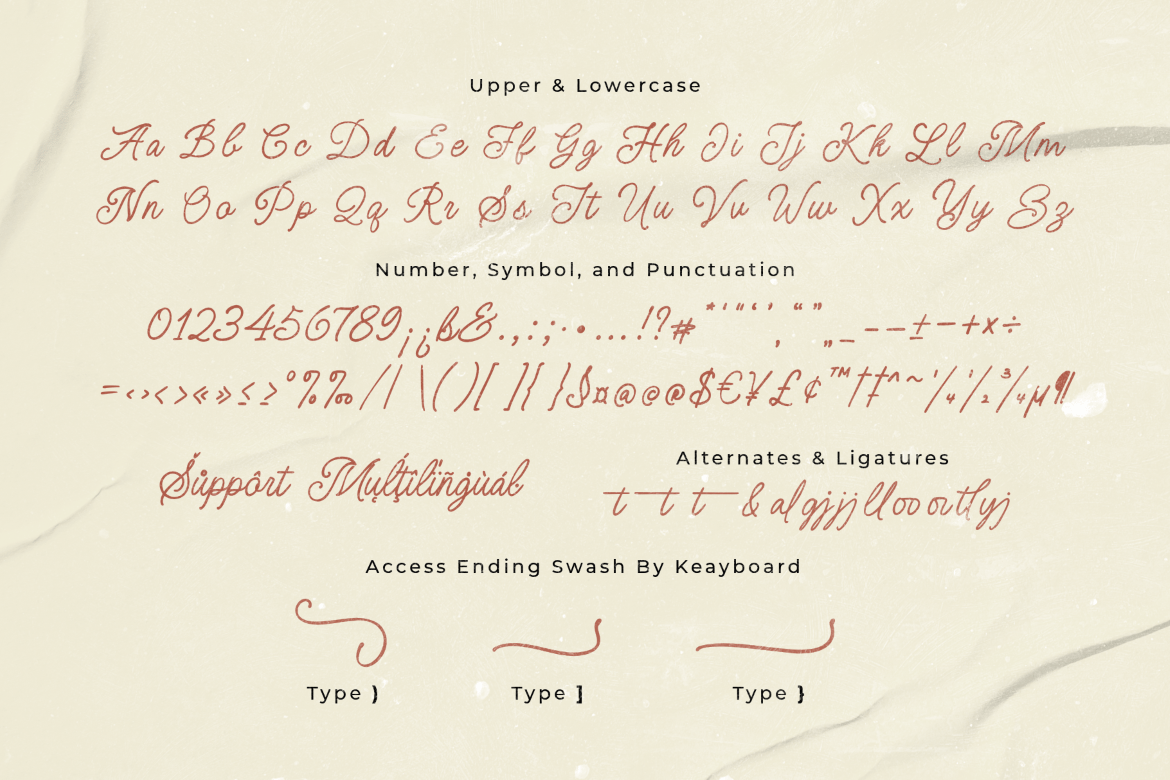 Upper & Lowercase
Aa Bb Cc Dd Ee Ff Gg Hh Ii Jj Kk Ll Mm
Nn Oo Pp Qq Rr Ss Tt Uu Vv Ww Xx Yy Zz
Number, Symbol, and Punctuation
0123456789¡¿ß&.,:;·•…!?#*'"‘’‚“”„_–—±-+×÷
=‹›<>«»≤≥°%‰/|\()[]{}§¤@©®$€¥£¢™†‡^~¼½¾µ¶
Šůppôrt Mụlţîlïñġùáĺ
Alternates & Ligatures
t t t & al gj jj ll oo or tl yj
Access Ending Swash By Keayboard
Type ) Type ] Type }